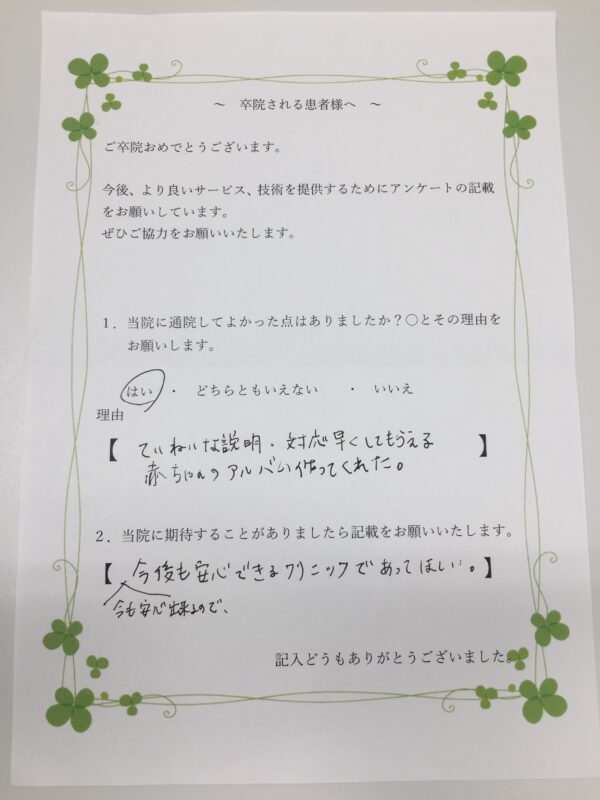 ～　卒院される患者様へ　～
ご卒院おめでとうございます。
今後、より良いサービス、技術を提供するためにアンケートの記載
をお願いしています。
ぜひご協力をお願いいたします。
１．当院に通院してよかった点はありましたか？○とその理由を
お願いします。
はい　・　どちらともいえない　・　いいえ
理由
【　ていねいな説明・対応早くしてもらえる　】
赤ちゃんのアルバム作ってくれた。
２．当院に期待することがありましたら記載をお願いいたします。
【　今後も安心できるクリニックであってほしい。】
今も安心出来るので、
記入どうもありがとうございました。